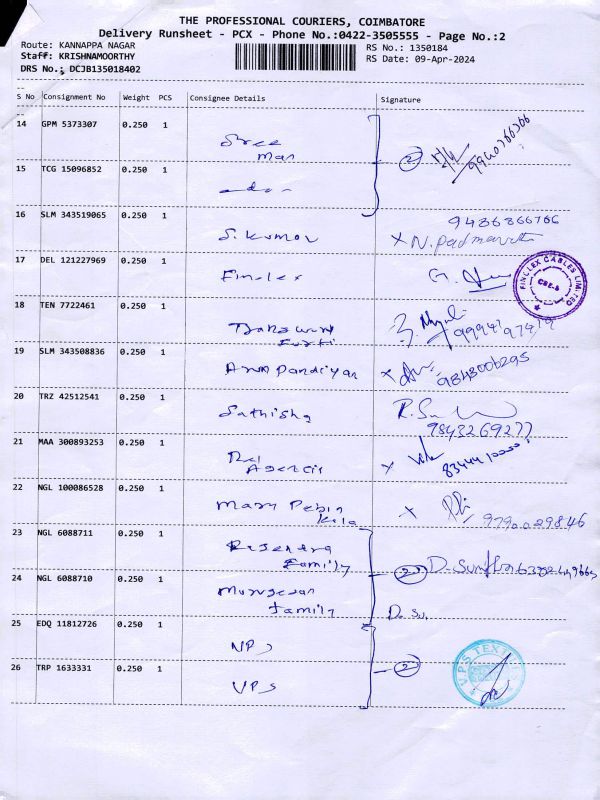 THE PROFESSIONAL COURIERS, COIMBATORE
Delivery Runsheet - PCX - Phone No.:0422-3505555 - Page No.:2
Route: KANNAPPA NAGAR
RS No.: 1350184
Staff: KRISHNAMOORTHY
RS Date: 09-Apr-2024
DRS No.: DCJB135018402
S No Consignment No Weight PCS Consignee Details Signature
14 GPM 5373307 0.250 1
Sree
man
2
15 TCG 15096852 0.250 1
16 SLM 343519065 0.250 1
9486866766
S. Kumar
x N. Padmavathi
17 DEL 121227969 0.250 1
Finolex
FINOLEX CABLES LIMITED
CBE.
18 TEN 7722461 0.250 1
19 SLM 343508836 0.250 1
Arun Pandiyan
x
9843006295
20 TRZ 42512541 0.250 1
Sathish
9843269277
21 MAA 300893253 0.250 1
Agencis
x
22 NGL 100086528 0.250 1
Mary
x
9790029846
23 NGL 6088711 0.250 1
Rajendra
Family
2
24 NGL 6088710 0.250 1
Murugesan
family
D. Su
25 EDQ 11812726 0.250 1
VPS
26 TRP 1633331 0.250 1
VPS
2
V.P.S TEXT